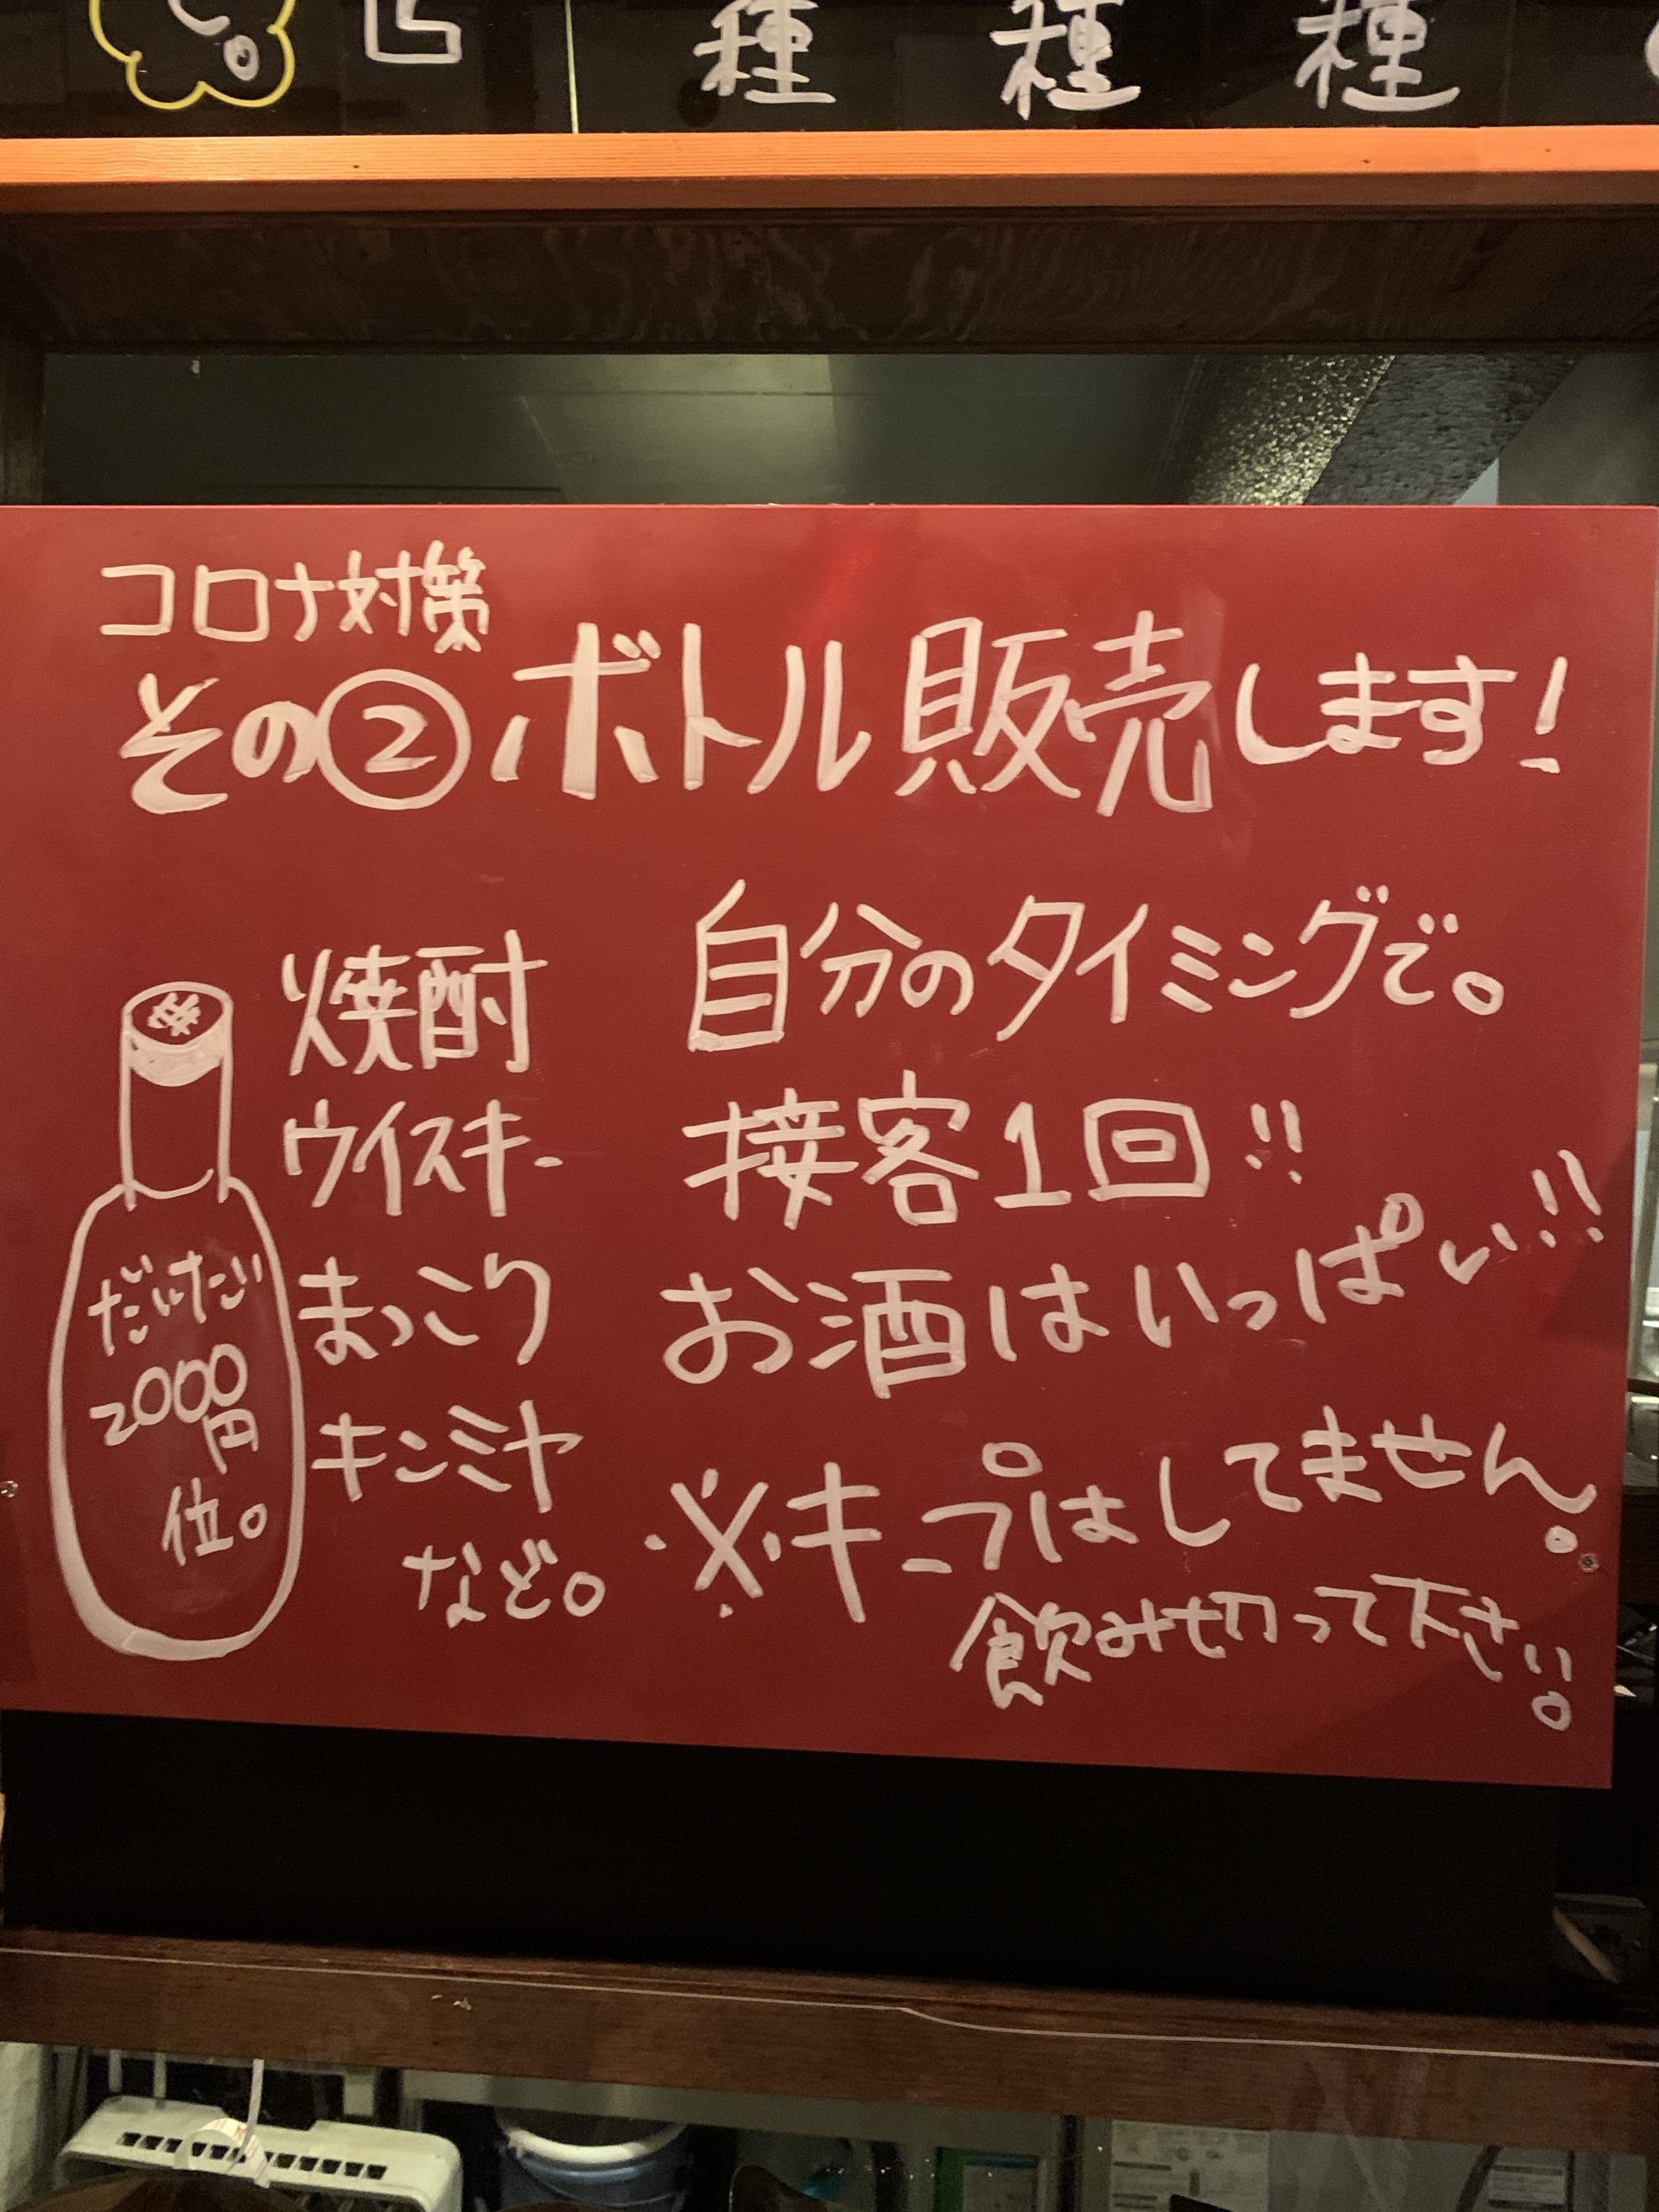 種 種 種
コロナ対策
その②ボトル販売します!
自分のタイミングで。
接客1回!!
お酒はいっぱい!!
※キープはしてません。
飲み切って下さい。
焼酎
ウイスキー
まっこり
キンミヤ
など。
だいたい
2000
円
位。